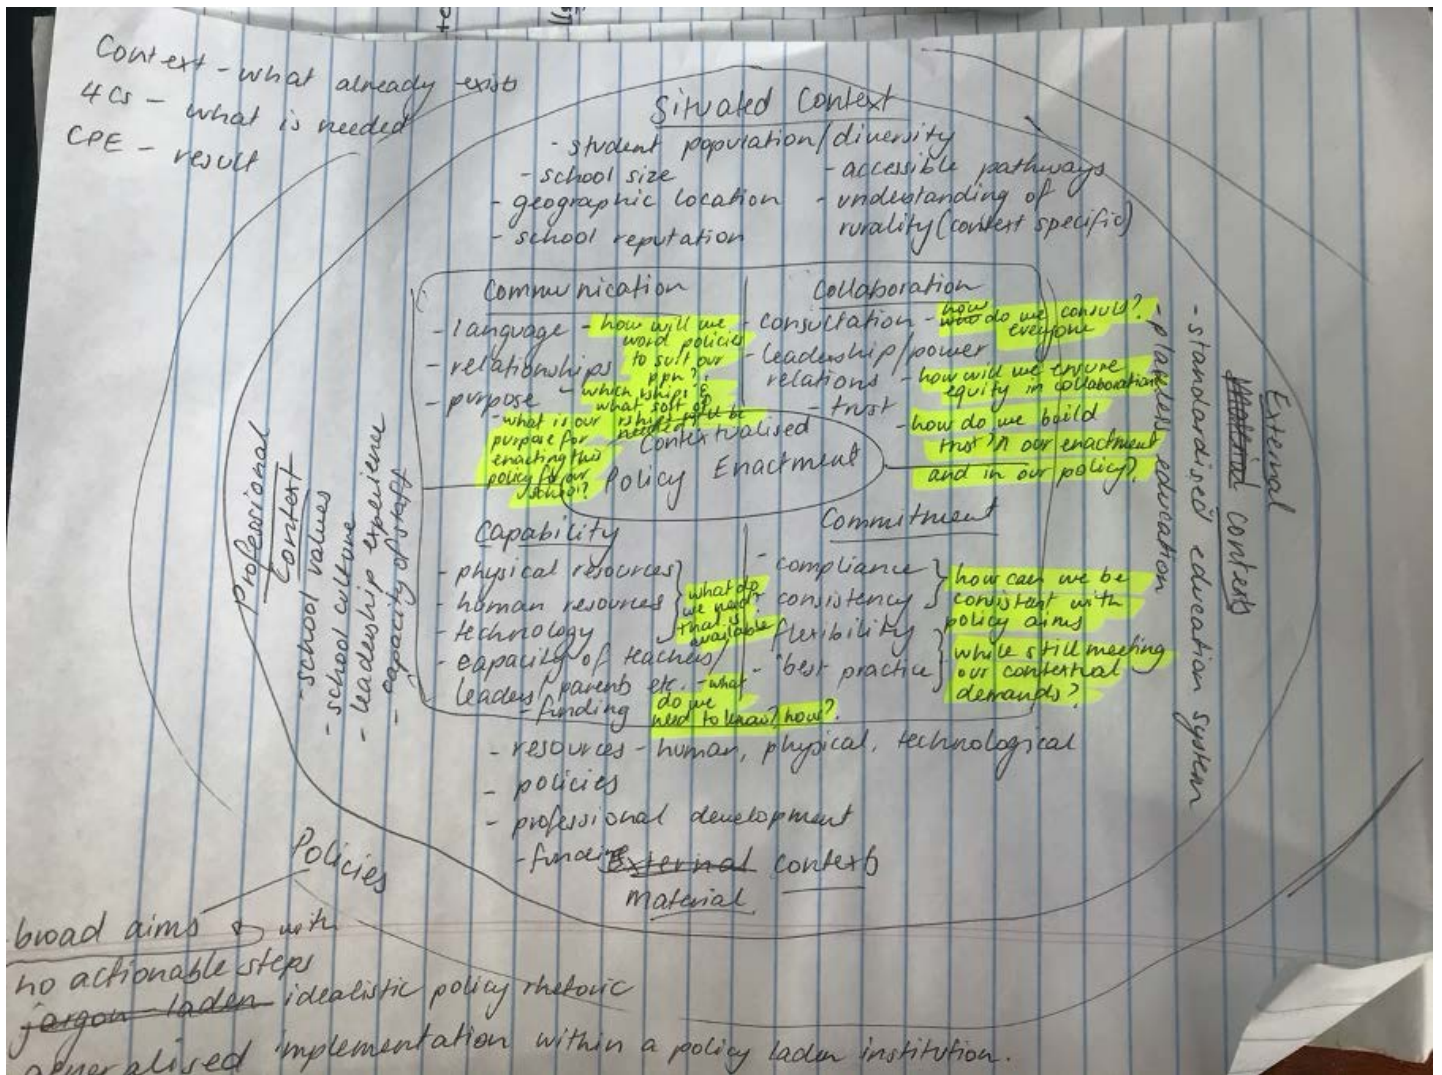 Context - what already exists
4Cs - what is needed
CPE - result
Situated Context
- student population/diversity
- school size
- geographic location
- school reputation
- accessible pathways
- understanding of
rurality (context specific)
Communication
- language - how will we
word policies
to suit our
ppn?
- relationships
- which rships &
what sort of
rships will be
needed?
- purpose
- what is our
purpose for
enacting this
policy for our
school?
Collaboration
- consultation - how do we consult?
everyone
- leadership/power
relations - how will we ensure
equity in collaboration
- trust
- how do we build
trust in our enactment
and in our policy?
Contextualised
Policy Enactment
Capability
- physical resources
- human resources
- technology
what do
we need?
that is
available
- capacity of teachers/
leaders/parents etc. - what
do we
need to know? how?
- funding
Commitment
- compliance
- consistency
how can we be
consistent with
policy aims
- flexibility
- "best practice
while still meeting
our contextual
demands?
Professional
Context
- school values
- school culture
- leadership experience
- capacity of staff
External
Material contexts
- standardised education system
- placeless education
- resources - human, physical, technological
- policies
- professional development
- funding
External contexts
Material
Policies
broad aims with
no actionable steps
jargon-laden idealistic policy rhetoric
generalised implementation within a policy laden institution.